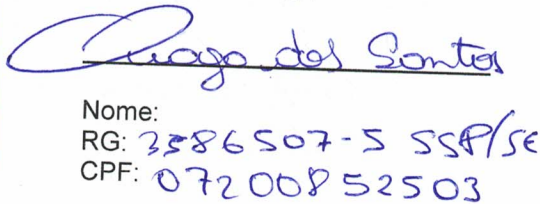 Thiago dos Santos
Nome:
RG: 3586507-5 SSP/SE
CPF: 07200852503